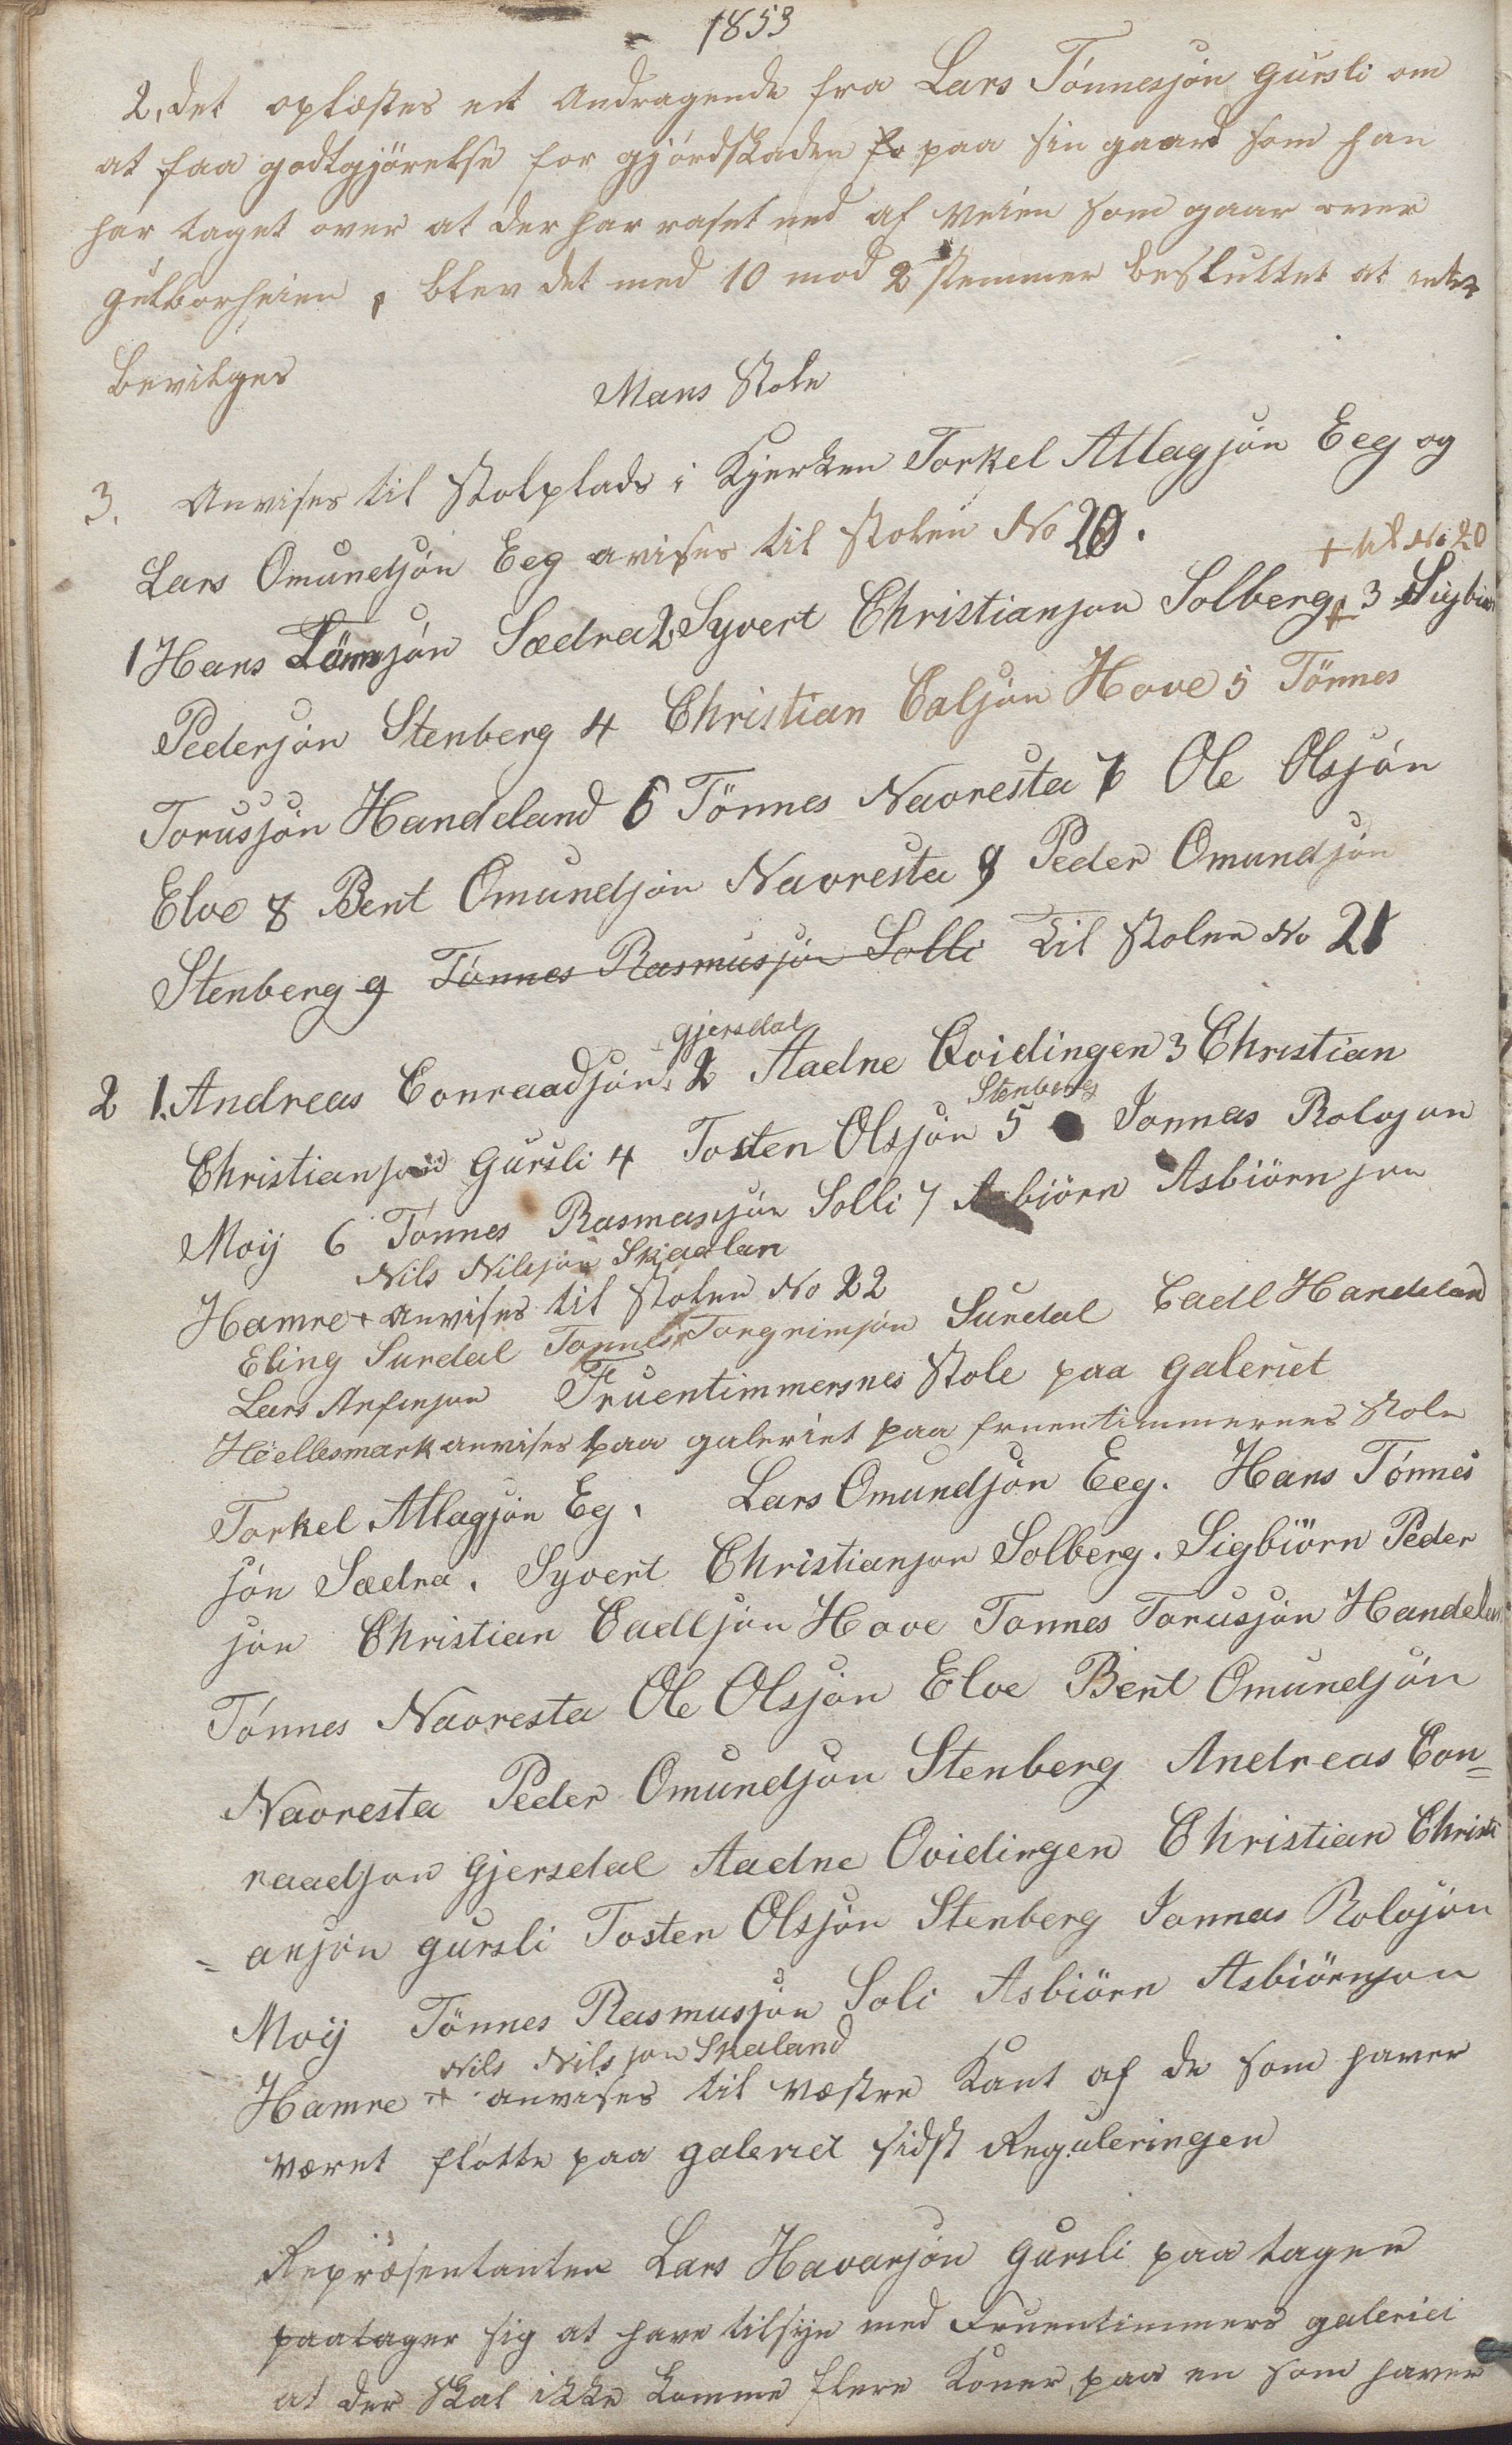 1853
2, det oplæstes eet Andragende fra Lars Tönnesjön Gursli om
at faa godtgjörelse for gjördskaden fo paa sin gaard som han
har taget over at der har raset ned af Veien som gaar over
Gulborheien, blev det med 10 mod 2 stemmer besluttet at inte
bevilges
Mans Stole
3. Anvises til Stolplads i Kjerken Torkel Atlagjön Eeg og
Lars Omundsjön Eeg avises til Stolen No 20.
+ til No 20
1 Hans Tönsjön Sædra 2 Syvert Christiansjon Solberg + 3 Sigbiör
Pedersjön Stenberg 4 Christian Caljön Hove 5 Tönnes
Torusjön Handeland 6 Tönnes Navresta 7 Ole Olsjön
Elve 8 Bent Omundjön Navresta 9 Peder Omundjön
Stenberg 9 Tönnes Rasmusjön Solli til Stolen No 21
Gjersdal
2 1. Andreas Conraadjön, 2 Aadne Qvidingen 3 Christian
Stenberg
Christianjön Gursli 4 Tosten Olsjön 5 Jonnas Rolojon
Moij 6 Tönnes Rasmasjön Solli 7 Asbiörn Asbiörnjon
Nils Nilsjön Skjadlan
Hamre + anvises til Stolen No 22
Eling Surdal Tonnes Torgrimjön Surdal Cadl Handeland
Lars Anfinjon Fruentimmersnes Stole paa Galeriet
Höellesmark anvises paa galeriet paa fruentimmernes Stole
Torkel Atlagjön Eg. Lars Omundjön Eeg. Hans Tönnes
jön Sædra. Syvert Christianjon Solberg. Sigbiörn Peder
jön Christian Cadljön Hove Tonnes Torusjön Handelan
Tönnes Navresta Ole Olsjön Elve Bent Omundjön
Navresta Peder Omundjön Stenberg Andreas Con=
raadjon Gjersdal Aadne Qvidingen Christian Christi
= anjön gursli Tosten Olsjön Stenberg Jonnas Rolojön
Moij Tönnes Rasmusjön Soli Asbiörn Asbiörnjon
Nils Nilsjon Skaland
Hamre + anvises til Væstre Kant af de som haver
været flötte paa galeriet sidst Reguleringen
Repræsentanten Lars Havarjön Gursli paa tager
paatager sig at have tilsyn med Fruentimmers galeriei
at der Skal ikke komme flere Koner paa en som haver